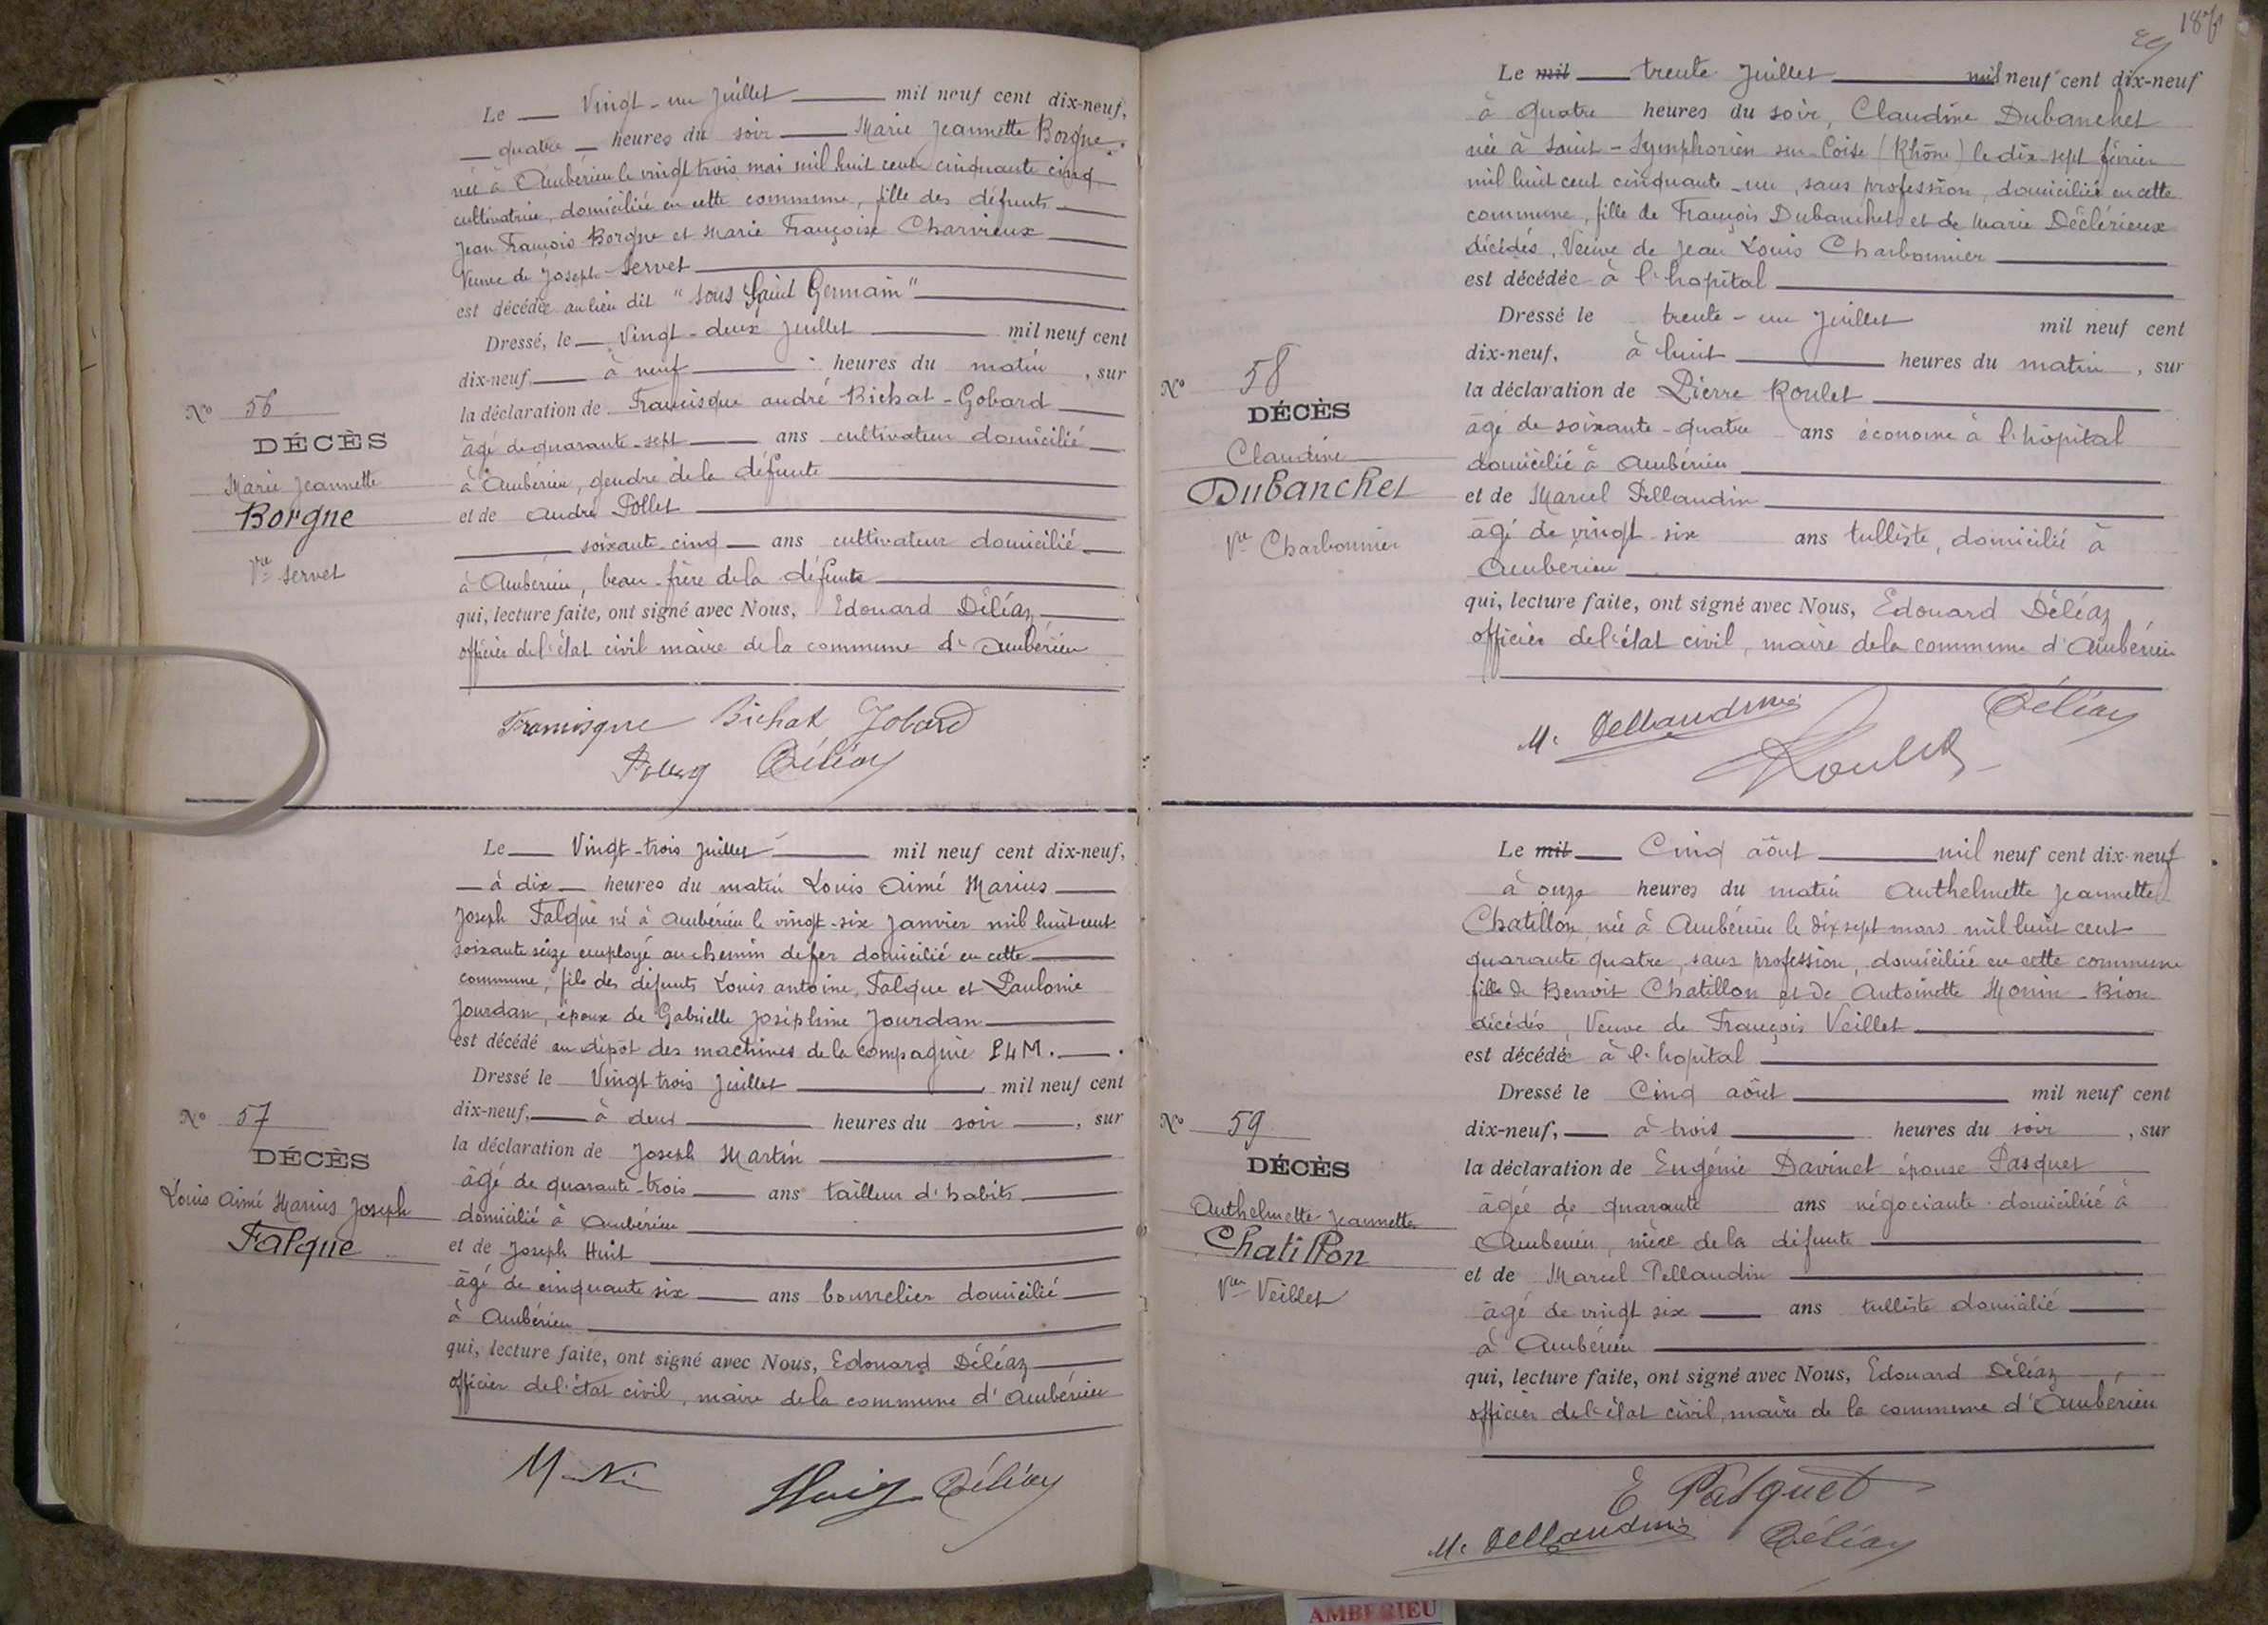 Le Vingt-un Juillet mil neuf cent dix-neuf,
quatre heures du soir Marie Jeannette Borgne
née à Ambérieu le vingt trois mai mil huit cent cinquante cinq
cultivatrice, domiciliée en cette commune, fille des défunts
Jean François Borgne et Marie Françoise Charvieux
Veuve de Joseph Servet
est décédée au lieu dit "sous Saint Germain"
Dressé, le Vingt-deux Juillet mil neuf cent
dix-neuf à neuf heures du matin, sur
la déclaration de Francisque andré Bichat-Gobard
âgé de quarante-sept ans cultivateur domicilié
à Ambérieu, gendre de la défunte
et de André Pollet
soixante-cinq ans cultivateur domicilié
à Ambérieu, beau-frère de la défunte
qui, lecture faite, ont signé avec Nous, Edouard Déléaz
officier de l'état civil maire de la commune d'Ambérieu
Francisque Bichat Gobard
Déléaz
No 56
DÉCÈS
Marie Jeannette
Borgne
Vve Servet
Le Vingt-trois Juillet mil neuf cent dix-neuf,
à dix heures du matin Louis Aimé Marius
Joseph Falque né à Ambérieu le vingt-six Janvier mil huit cent
soixante seize employé au chemin de fer domicilié en cette
commune, fils des défunts Louis antoine, Falque et Paulonie
Jourdan, époux de Gabrielle Joséphine Jourdan
est décédé au dépôt des machines de la compagnie PLM.
Dressé le Vingt trois Juillet mil neuf cent
dix-neuf, à deux heures du soir, sur
la déclaration de Joseph Martin
âgé de quarante-trois ans tailleur d'habits
domicilié à Ambérieu
et de Joseph Huit
âgé de cinquante six ans bourrelier domicilié
à Ambérieu
qui, lecture faite, ont signé avec Nous, Edouard Déléaz
officier de l'état civil, maire de la commune d'Ambérieu
Déléaz
No 57
DÉCÈS
Louis Aimé Marius Joseph
Falque
29
Le mil trente Juillet mil neuf cent dix-neuf
à quatre heures du soir, Claudine Dubanchet
née à Saint-Symphorien sur Coise (Rhône) le dix-sept février
mil huit cent cinquante-un, sans profession, domiciliée en cette
commune, fille de François Dubanchet et de Marie Déclérieux
décédés, Veuve de Jean Louis Charbonnier
est décédée à l'hopital
Dressé le trente-un Juillet mil neuf cent
dix-neuf, à huit heures du matin, sur
la déclaration de Pierre Roulet
âgé de soixante-quatre ans économe à l'hôpital
domicilié à Ambérieu
et de Marcel Pellaudin
âgé de vingt-six ans tulliste, domicilié à
Ambérieu
qui, lecture faite, ont signé avec Nous, Edouard Déléaz
officier de l'état civil, maire de la commune d'Ambérieu
Déléaz
Roulet
No 58
DÉCÈS
Claudine
Dubanchet
Vve Charbonnier
Le mil Cinq aôut mil neuf cent dix-neuf
à onze heures du matin Anthelmette Jeannette
Chatillon, née à Ambérieu le dix sept mars mil huit cent
quarante quatre, sans profession, domiciliée en cette commune
fille de Benoit Chatillon et de Antoinette Monin-Bion
décédés, Veuve de François Veillet
est décédée à l'hopital
Dressé le Cinq aôut mil neuf cent
dix-neuf, à trois heures du soir, sur
la déclaration de Eugénie Davinet épouse Pasquet
âgée de quarante ans négociante domiciliée à
Ambérieu, nièce de la défunte
et de Marcel Pellaudin
âgé de vingt six ans tulliste domicilié
à Ambérieu
qui, lecture faite, ont signé avec Nous, Edouard Déléaz
officier de l'état civil, maire de la commune d'Ambérieu
E Pasquet
Déléaz
No 59
DÉCÈS
Anthelmette Jeannette
Chatillon
Vve Veillet
AMBERIEU